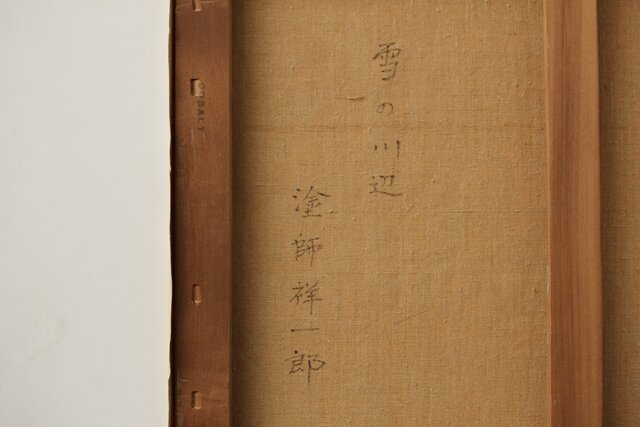 雪の川辺
塗師祥一郎